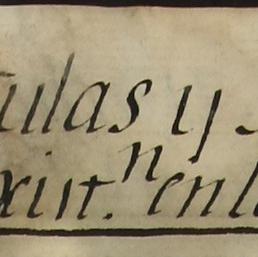 ulas y
xist.n en l